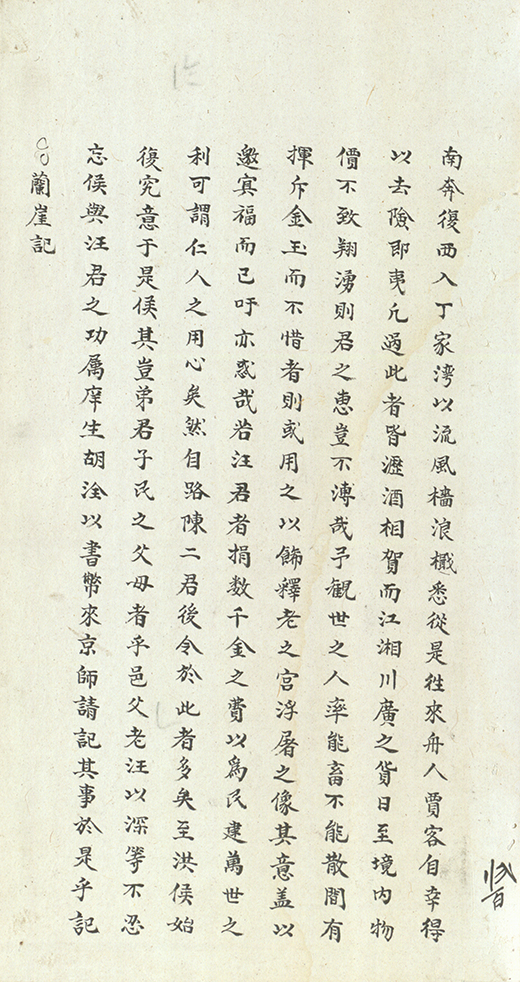 南奔復西入丁家灣以流風檣浪檝悉從是徃來舟人賈客自幸得
以去險即夷凢過此者皆瀝酒相賀而江湘川廣之貨日至境内物
價不致翔湧則君之惠豈不溥哉予觀世之人率能畜不能散間有
揮斥金玉而不惜者則或用之以飾釋老之宫浮屠之像其意盖以
邀㝠福而已吁亦惑哉若汪君者捐数千金之費以爲民建萬世之
利可謂仁人之用心矣然自路陳二君後令於此者多矣至洪侯始
復究意于是侯其豈弟君子民之父母者乎邑父老汪以深等不忍
忘侯與汪君之功属庠生胡淦以書幣來京師請記其事於是乎記
蘭崖記